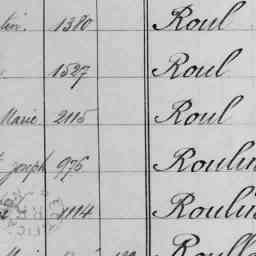 lin. 1380 Roul
1527 Roul
Marie 2115 Roul
Joseph 976 Roulin
1114 Roulin
Roull